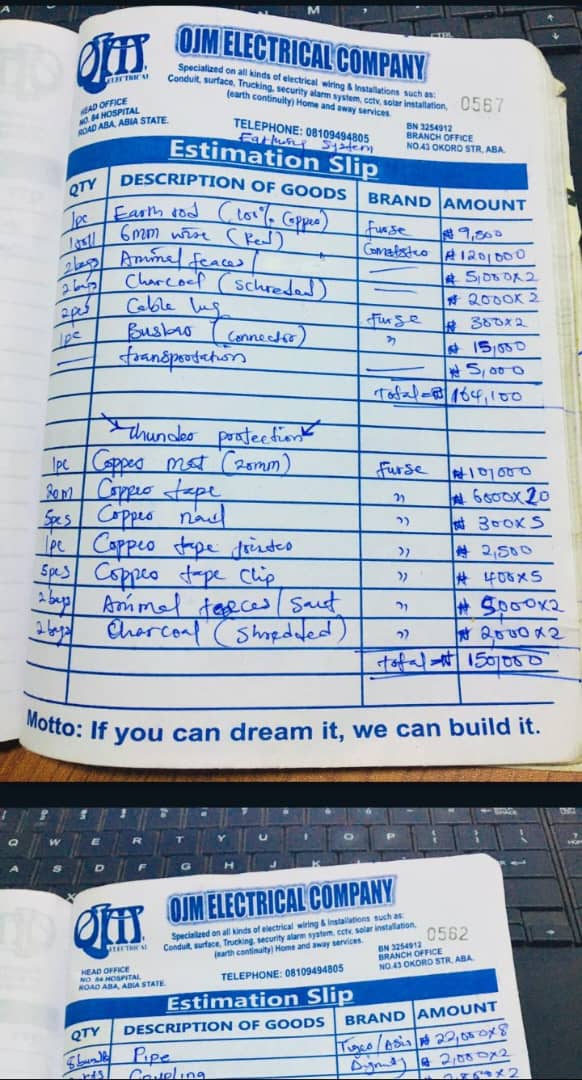 OJM
ELECTRICAL
OJM ELECTRICAL COMPANY
Specialized on all kinds of electrical wiring & Installations such as:
Conduit, surface, Trucking, security alarm system, cctv, solar installation,
(earth continuity) Home and away services.
0567
HEAD OFFICE
NO. 84 HOSPITAL
ROAD ABA, ABIA STATE.
TELEPHONE: 08109494805
BN 3254912
BRANCH OFFICE
NO.43 OKORO STR, ABA.
Earthing System
Estimation Slip
QTY DESCRIPTION OF GOODS BRAND AMOUNT
1pc Earth rod (100% Copper) furse ₦ 9,500
1roll 6mm wire (Red) ₦ 120,000
2bags Animal feaces / ₦ 5,000x2
2bags Charcoal (schreded) ₦ 2000x2
2pcs Cable lug furse ₦ 300x2
1pc Busbar (connector) " ₦ 15,000
transportation ₦ 5,000
Total = ₦ 164,100
Thunder protection
1pc Copper mat (20mm) furse ₦ 10,000
20m Copper tape " ₦ 6000x20
5pcs Copper nail " ₦ 300x5
1pc Copper tape jointer " ₦ 2,500
5pcs Copper tape clip " ₦ 400x5
2bags Animal feaces / Saut " ₦ 5000x2
2bags Charcoal (Shredded) " ₦ 2,000x2
Total = ₦ 150,000
Motto: If you can dream it, we can build it.
OJM
ELECTRICAL
OJM ELECTRICAL COMPANY
Specialized on all kinds of electrical wiring & Installations such as:
Conduit, surface, Trucking, security alarm system, cctv, solar installation,
(earth continuity) Home and away services.
0562
HEAD OFFICE
NO. 84 HOSPITAL
ROAD ABA, ABIA STATE.
TELEPHONE: 08109494805
BN 3254912
BRANCH OFFICE
NO.43 OKORO STR, ABA.
Estimation Slip
QTY DESCRIPTION OF GOODS BRAND AMOUNT
8bundle Pipe ₦ 22,000x8
Coupling ₦ 2,000x2